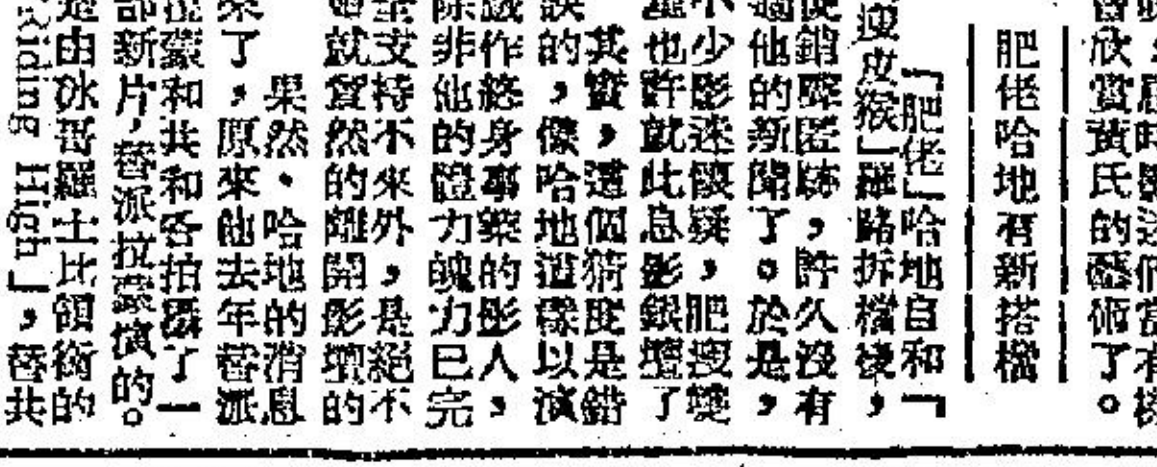 會欣賞黃氏的藝術了。
肥佬哈地有新搭檔
「肥佬」哈地自和「
瘦皮猴」羅路拆檔後,
便銷聲匿跡,許久沒有
過他的新聞了。於是,
不少影迷懷疑,肥瘦雙
也許就此息影銀壇了
其實,這個猜度是錯
誤的,像哈地這樣以演
戲作終身事業的影人,
除非他的體力魄力已完
全支持不來外,是絕不
就貿然的離開影壇的
果然,哈地的消息
來了,原來他去年替派
拉蒙和共和各拍攝了一
部新片,替派拉蒙演的。
是由冰哥羅士比領銜的
Riding High」,替共